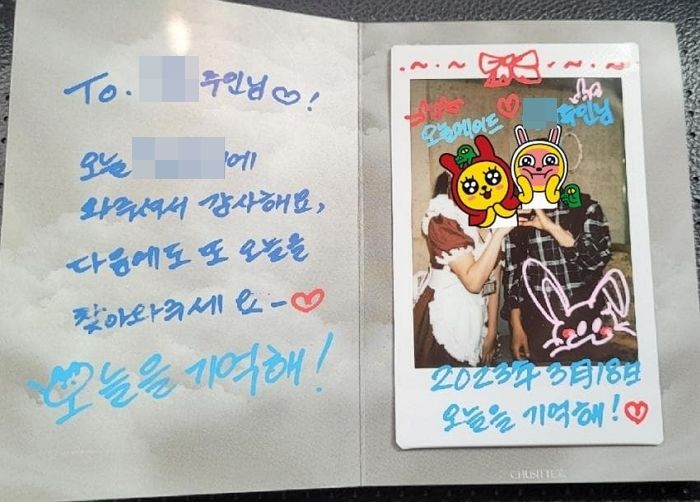 To. 주인님♡!
오늘 에
와주셔서 감사해요,
다음에도 또 오늘을
찾아와주세요-♡
오늘을 기억해!
오늘메이드 ♡ 주인님
2023年 3月18日
오늘을 기억해!♡